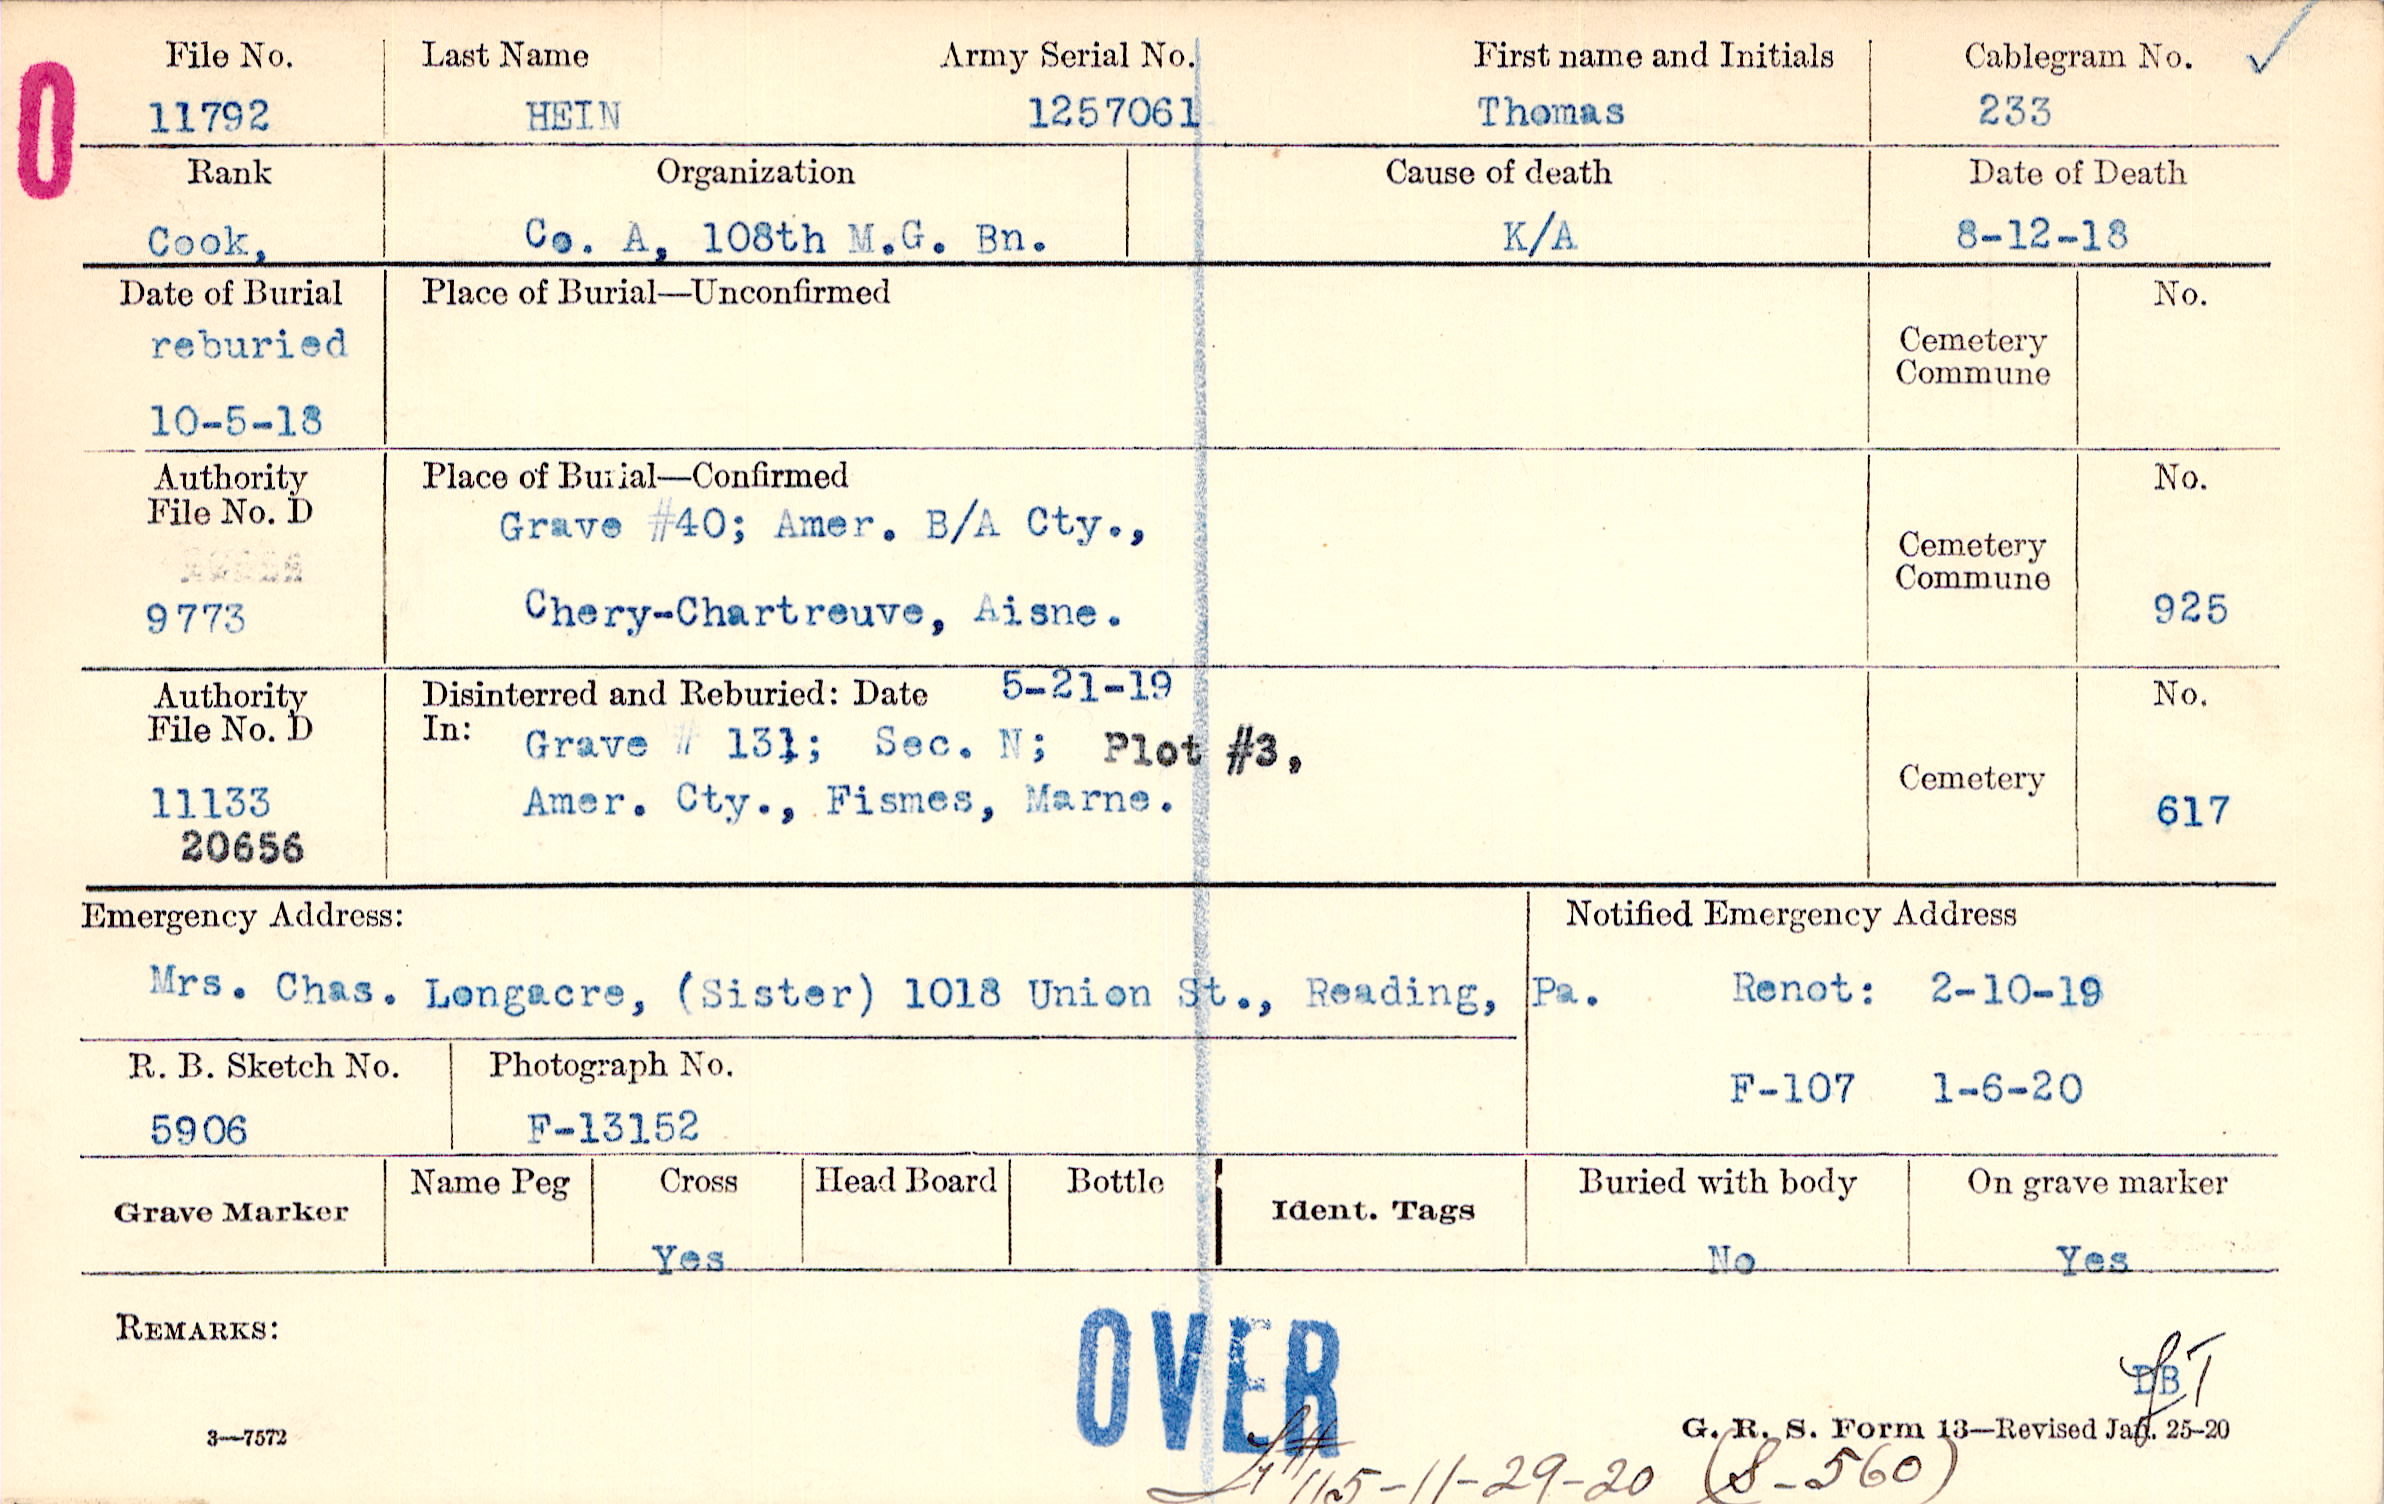 0
File No. Last Name Army Serial No. First name and Initials Cablegram No.
11792 HEIN 1257061 Thomas 233
Rank Organization Cause of death Date of Death
Cook, Co. A, 108th M.G. Bn. K/A 8-12-18
Date of Burial Place of Burial—Unconfirmed No.
reburied Cemetery
Commune
10-5-18
Authority Place of Burial—Confirmed No.
File No. D Grave #40; Amer. B/A Cty.,
Cemetery
Commune
9773 Chery-Chartreuve, Aisne. 925
Authority Disinterred and Reburied: Date 5-21-19 No.
File No. D In: Grave # 131; Sec. N; Plot #3,
Cemetery
11133 Amer. Cty., Fismes, Marne. 617
20656
Emergency Address: Notified Emergency Address
Mrs. Chas. Longacre, (Sister) 1018 Union St., Reading, Pa. Renot: 2-10-19
R. B. Sketch No. Photograph No.
F-107 1-6-20
5906 F-13152
Grave Marker Name Peg Cross Head Board Bottle Ident. Tags Buried with body On grave marker
Yes No Yes
REMARKS:
OVER
DB
3—7572 G. R. S. Form 13—Revised Jan. 25-20
115-11-29-20 (S-560)